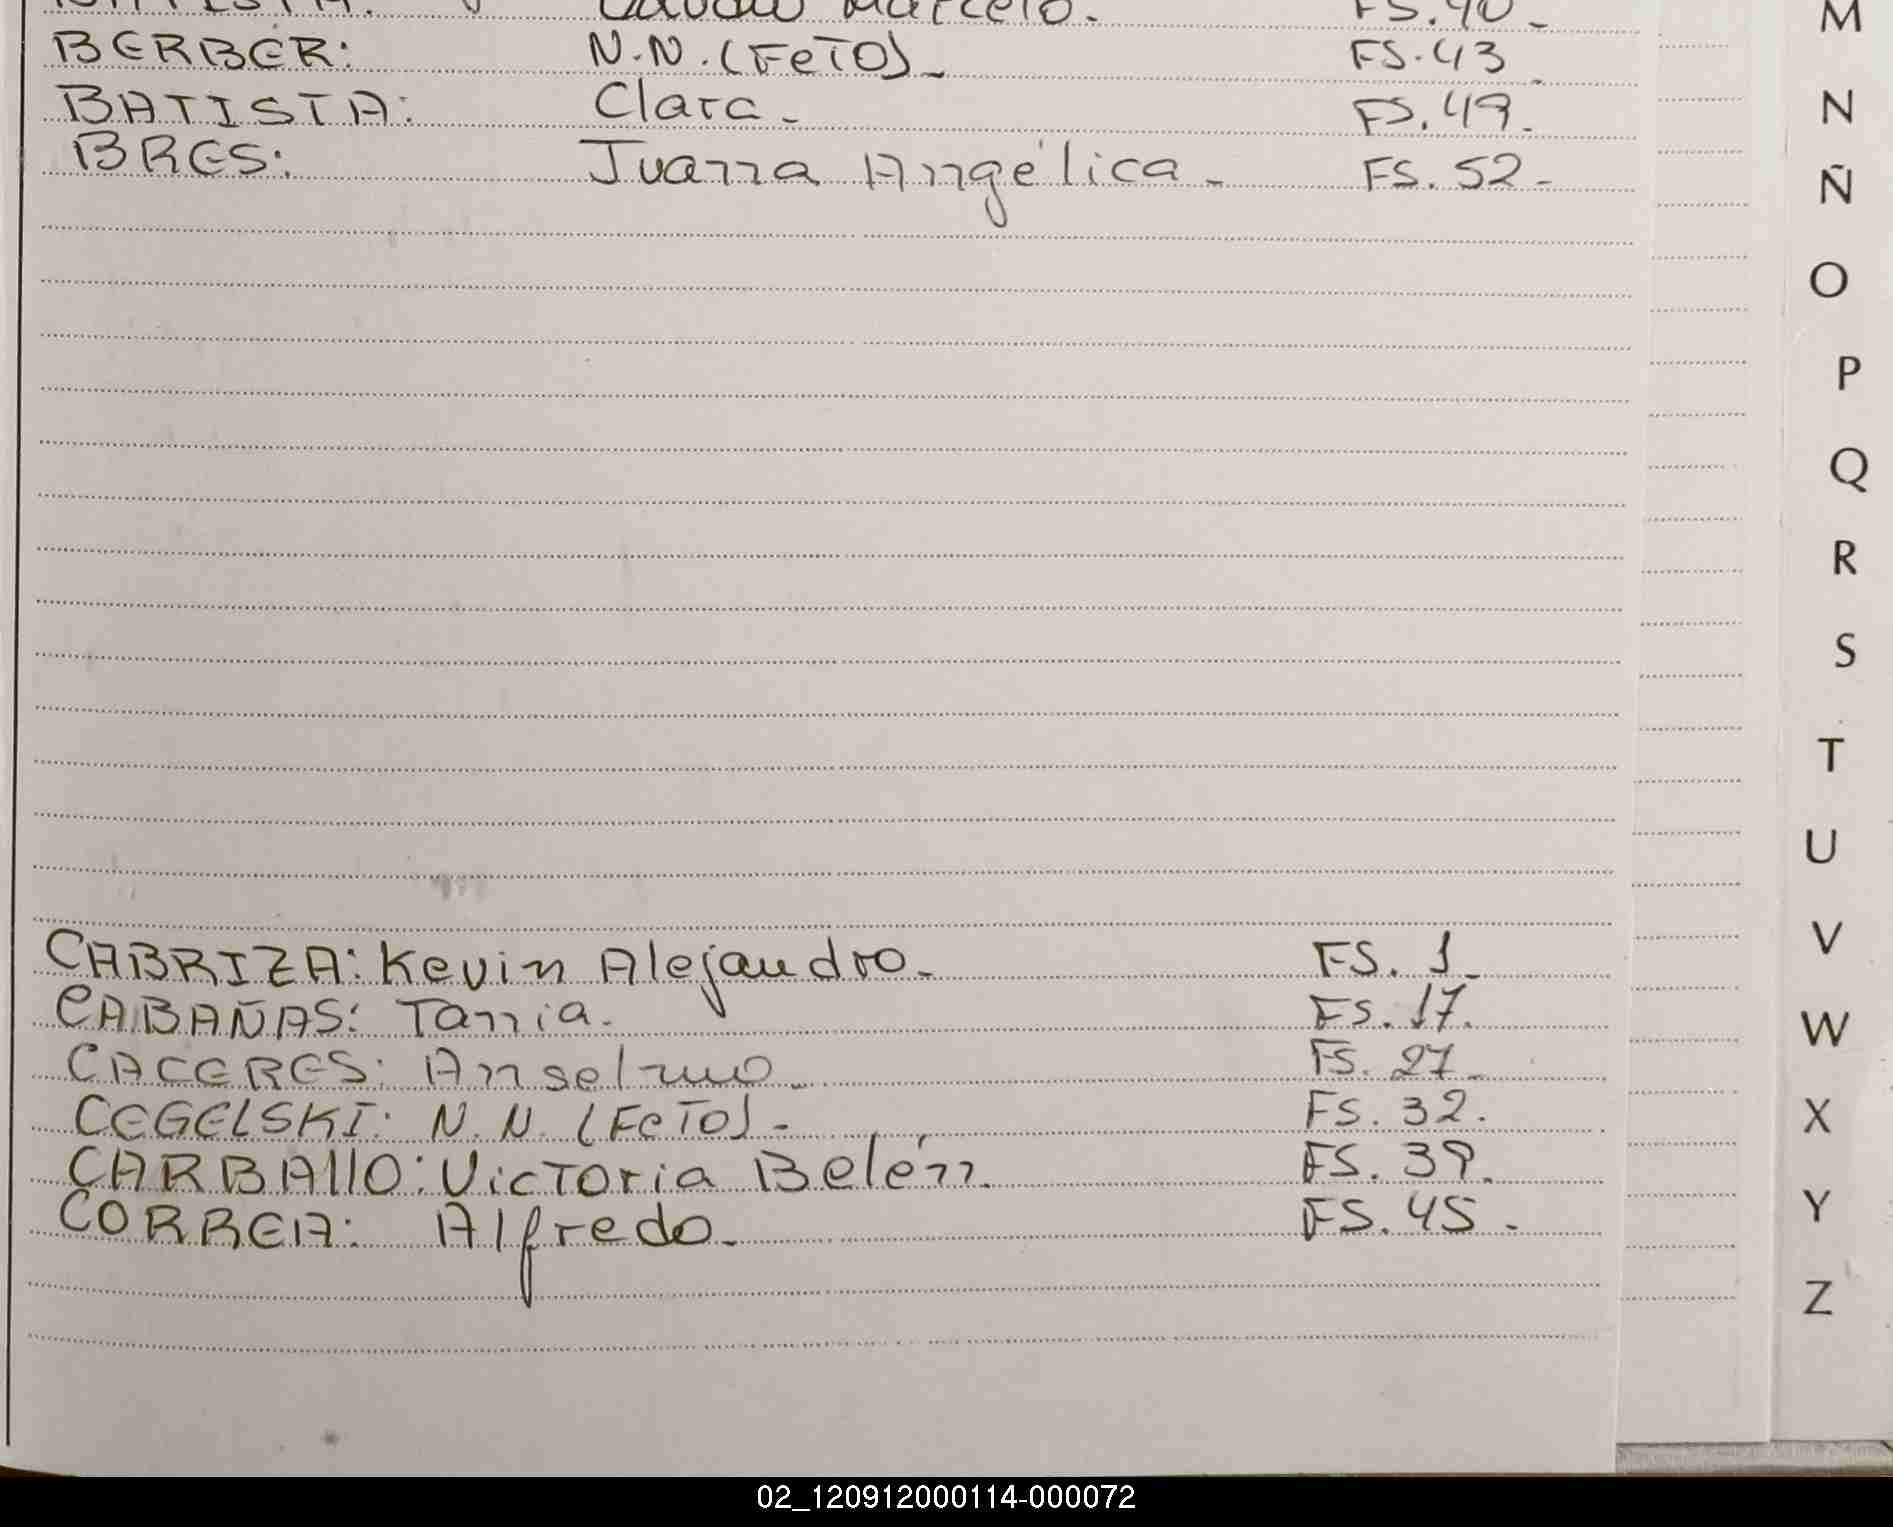 BATISTA: Claudio Marcelo. FS.40-
BERBER: N.N. (FeTO)- FS.43
BATISTA: Clara- FS.49.
BRES: Juana Angélica- FS. 52-
CABRIZA: Kevin Alejandro- FS. 1-
CABAÑAS: Tania. FS. 17.
CACERES: Anselmo- FS. 27-
CEGELSKI: N.N. (FeTO)- FS. 32.
CARBAllO: VicToria Belén. FS. 39.
CORREA: Alfredo- FS. 45-
M
N
Ñ
O
P
Q
R
S
T
U
V
W
X
Y
Z
02_120912000114-000072